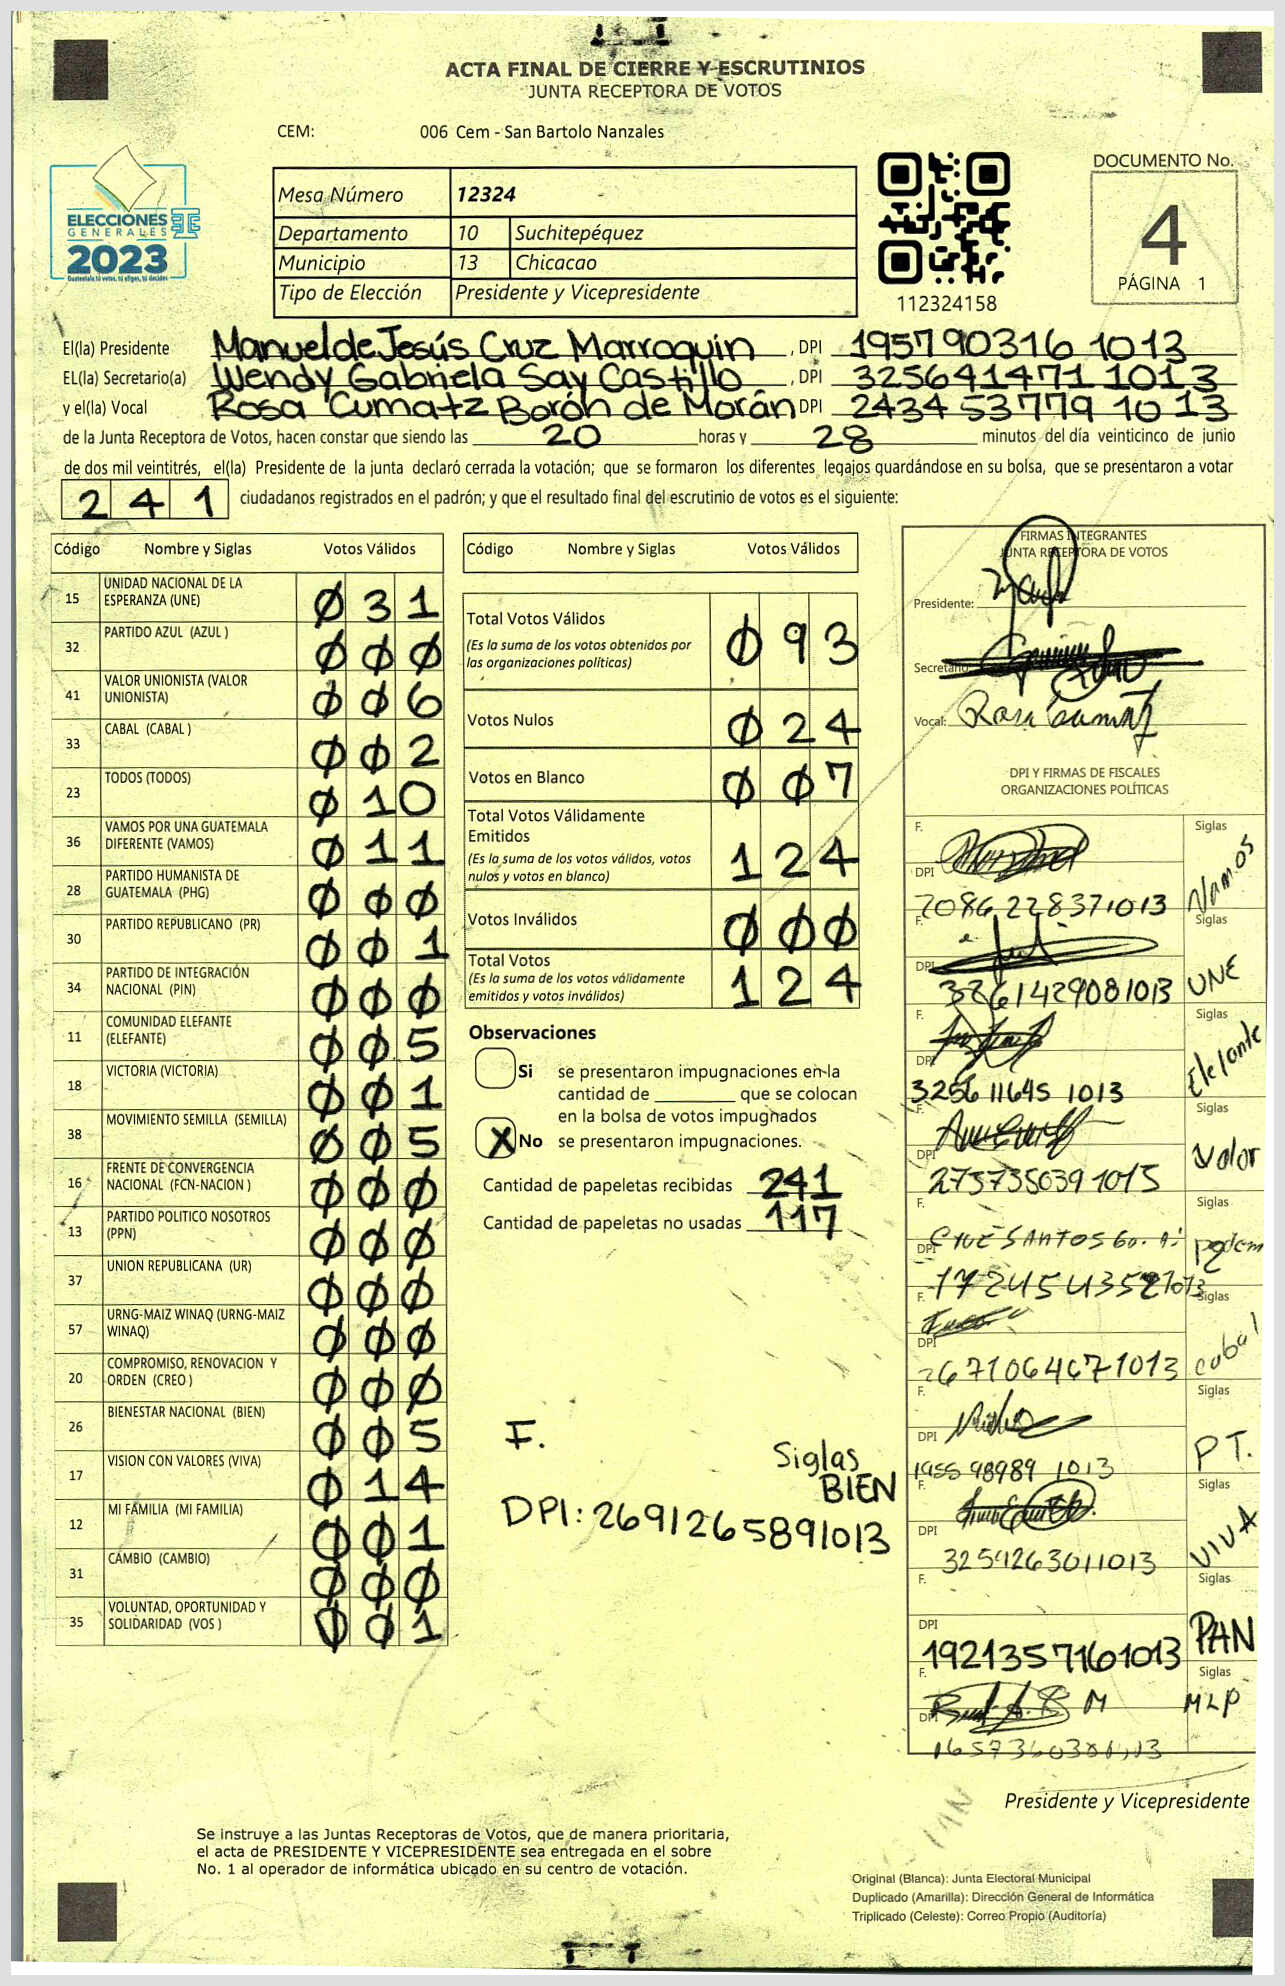 ACTA FINAL DE CIERRE Y ESCRUTINIOS
JUNTA RECEPTORA DE VOTOS
CEM: 006 Cem - San Bartolo Nanzales
ELECCIONES
GENERALES
2023
Guatemala tú votas, tú eliges, tú decides
Mesa Número 12324
Departamento 10 Suchitepéquez
Municipio 13 Chicacao
Tipo de Elección Presidente y Vicepresidente
112324158
DOCUMENTO No.
4
PÁGINA 1
El(la) Presidente Manuel de Jesús Cruz Marroquin , DPI 195790316 1013
EL(la) Secretario(a) Wendy Gabriela Say Castillo , DPI 325641471 1013
y el(la) Vocal Rosa Cumatz Borón de Morán DPI 2434 53779 1013
de la Junta Receptora de Votos, hacen constar que siendo las 20 horas y 28 minutos del día veinticinco de junio
de dos mil veintitrés, el(la) Presidente de la junta declaró cerrada la votación; que se formaron los diferentes legajos guardándose en su bolsa, que se presentaron a votar
241 ciudadanos registrados en el padrón; y que el resultado final del escrutinio de votos es el siguiente:
Código Nombre y Siglas Votos Válidos
15 UNIDAD NACIONAL DE LA ESPERANZA (UNE) 031
32 PARTIDO AZUL (AZUL ) 000
41 VALOR UNIONISTA (VALOR UNIONISTA) 006
33 CABAL (CABAL ) 002
23 TODOS (TODOS) 010
36 VAMOS POR UNA GUATEMALA DIFERENTE (VAMOS) 011
28 PARTIDO HUMANISTA DE GUATEMALA (PHG) 000
30 PARTIDO REPUBLICANO (PR) 001
34 PARTIDO DE INTEGRACIÓN NACIONAL (PIN) 000
11 COMUNIDAD ELEFANTE (ELEFANTE) 005
18 VICTORIA (VICTORIA) 001
38 MOVIMIENTO SEMILLA (SEMILLA) 005
16 FRENTE DE CONVERGENCIA NACIONAL (FCN-NACION ) 000
13 PARTIDO POLITICO NOSOTROS (PPN) 000
37 UNION REPUBLICANA (UR) 000
57 URNG-MAIZ WINAQ (URNG-MAIZ WINAQ) 000
20 COMPROMISO, RENOVACION Y ORDEN (CREO ) 000
26 BIENESTAR NACIONAL (BIEN) 005
17 VISION CON VALORES (VIVA) 014
12 MI FAMILIA (MI FAMILIA) 001
31 CAMBIO (CAMBIO) 000
35 VOLUNTAD, OPORTUNIDAD Y SOLIDARIDAD (VOS ) 001
Código Nombre y Siglas Votos Válidos
Total Votos Válidos 093
(Es la suma de los votos obtenidos por
las organizaciones políticas)
Votos Nulos 024
Votos en Blanco 007
Total Votos Válidamente
Emitidos 124
(Es la suma de los votos válidos, votos
nulos y votos en blanco)
Votos Inválidos 000
Total Votos 124
(Es la suma de los votos válidamente
emitidos y votos inválidos)
Observaciones
Si se presentaron impugnaciones en la
cantidad de ________ que se colocan
en la bolsa de votos impugnados
X No se presentaron impugnaciones.
Cantidad de papeletas recibidas 241
Cantidad de papeletas no usadas 117
F.
Siglas
BIEN
DPI: 2691265891013
FIRMAS INTEGRANTES
JUNTA RECEPTORA DE VOTOS
Presidente:
Secretario:
Vocal: Rosa Cumatz
DPI Y FIRMAS DE FISCALES
ORGANIZACIONES POLÍTICAS
F. Siglas
DPI 2086228371013 Vamos
F. Siglas
DPI 3261429081013 UNE
F. Siglas
DPI 3256 11645 1013 Elefante
F. Siglas
DPI 2757350391015 Valor
F. Siglas
DPI Podem
F. Siglas
DPI 2671064671013 cabal
F. Siglas
DPI 1955 98989 1013 PT.
F. Siglas
DPI 3254263011013 VIVA
F. Siglas
DPI 1921357161013 PAN
F. Siglas
DPI MLP
Presidente y Vicepresidente
Se instruye a las Juntas Receptoras de Votos, que de manera prioritaria,
el acta de PRESIDENTE Y VICEPRESIDENTE sea entregada en el sobre
No. 1 al operador de informática ubicado en su centro de votación.
Original (Blanca): Junta Electoral Municipal
Duplicado (Amarilla): Dirección General de Informática
Triplicado (Celeste): Correo Propio (Auditoría)